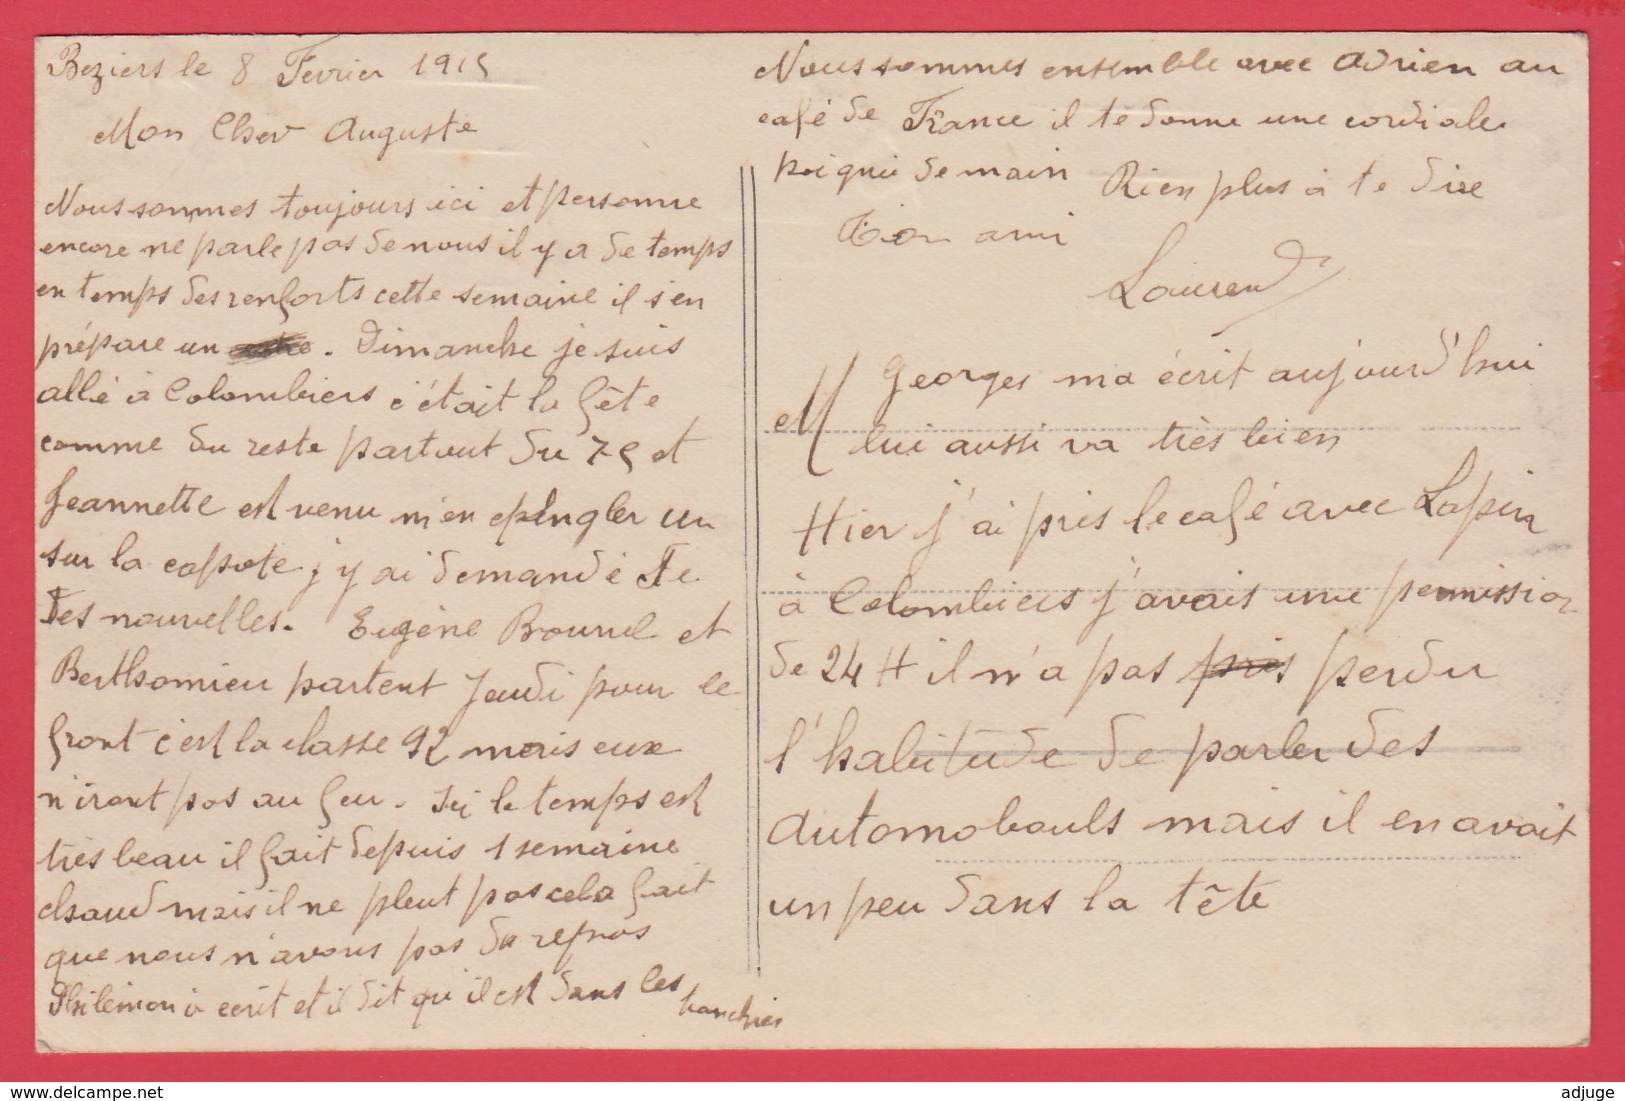 Beziers le 8 Fevrier 1915
Mon Cher Auguste
Nous sommes toujours ici et personne
encore ne parle pas de nous il y a de temps
en temps des renforts cette semaine il s'en
prépare un. Dimanche je suis
allé à Colombiers c'était la fête
comme du reste partout du 75 et
Jeannette est venu m'en epingler un
sur la capote j y ai demandé de
tes nouvelles. Eugène Bourrel et
Berthomieu partent Jeudi pour le
front c'est la classe 92 mais eux
n'iront pas au feu. Ici le temps est
très beau il fait depuis 1 semaine
chaud mais il ne pleut pas cela fait
que nous n'avons pas de repos
Philémon à ecrit et il dit qu'il est dans les
tranchies
Nous sommes ensemble avec Adrien au
café de France il te donne une cordiale
poigniè de main Rien plus à te dire
Ton ami
Laurend
Georges ma écrit aujourd'hui
lui aussi va très bien
Hier j'ai pris le café avec Lapin
à Colombiers j'avais une permission
de 24 H il n'a pas pris perdu
l'habitude de parler des
automobouls mais il en avait
un peu dans la tête
adjuge.com